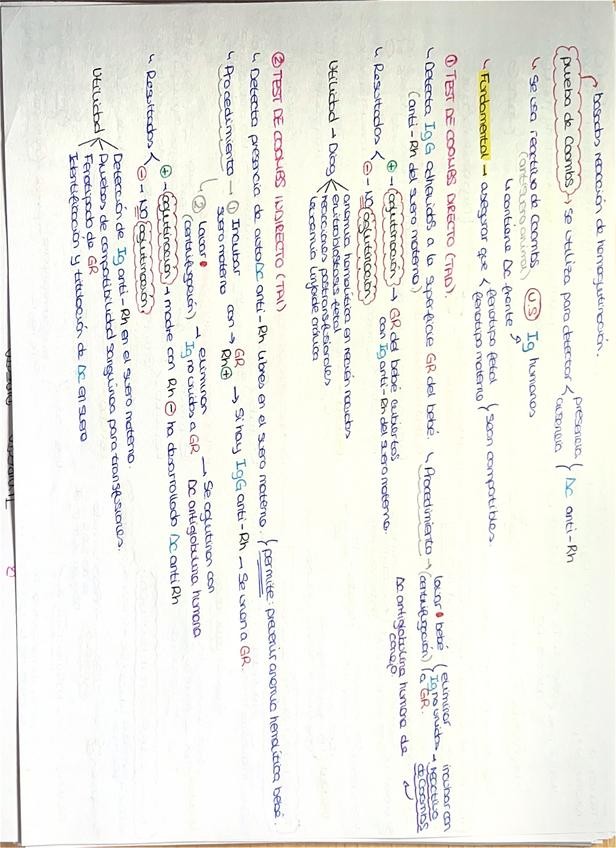 ↳ basados reacción de hemaglutinación.
prueba de Coombs → se utiliza para detectar < presencia / ausencia } Ac anti-Rh
↳ se usa reactivo de Coombs (VS) Ig humanas
(antisuero animal)
↳ contiene Ac frente
↳ Fundamental → asegurar que < fenotipo fetal / fenotipo materno } sean compatibles.
① TEST DE COOMBS DIRECTO (TAD).
↳ Detecta IgG adheridos a la superficie GR del bebé.
(anti-Rh del suero materno)
↳ Procedimiento → lavar bebé (centrifugación) { eliminar Ig no unidas a GR. → incubar con reactivo de Coombs
Ac antiglobulina humana de conejo
↳ Resultados < ⊕ → aglutinación → GR del bebé cubiertos con Ig anti-Rh del suero materno.
⊖ → NO aglutinación
Utilidad → Diag < anemia hemolítica en recién nacidos
eritroblastosis fetal
reacciones postransfusionales
leucemia linfoide crónica
② TEST DE COOMBS INDIRECTO (TAI)
↳ Detecta presencia de autoAc anti-Rh libres en el suero materno. { permite: prevenir anemia hemolítica bebé.
↳ Procedimiento → ① Incubar suero materno con → GR Rh⊕ → Si hay IgG anti-Rh → Se unan a GR.
↳ ② lavar (centrifugación) → eliminar Ig no unidos a GR → Se aglutinan con Ac antiglobulina humana
↳ Resultados < ⊕ → aglutinación → madre con Rh ⊖ ha desarrollado Ac anti Rh
⊖ → NO aglutinación
Utilidad < Detección de Ig anti-Rh en el suero materno.
Pruebas de compatibilidad sanguínea para transfusiones.
Fenotipado de GR
Identificación y titulación de Ac en suero